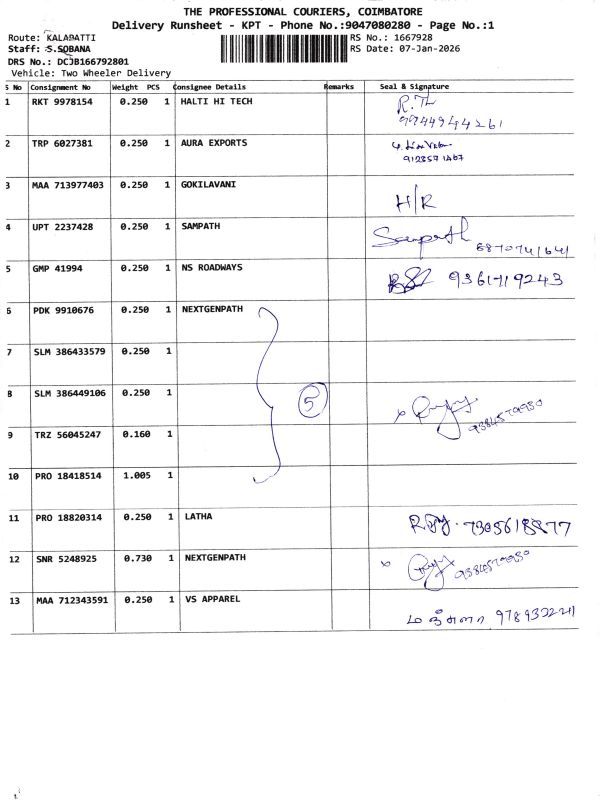 THE PROFESSIONAL COURIERS, COIMBATORE
Delivery Runsheet - KPT - Phone No.:9047080280 - Page No.:1
Route: KALAPATTI RS No.: 1667928
Staff: S.SOBANA RS Date: 07-Jan-2026
DRS No.: DCJB166792801
Vehicle: Two Wheeler Delivery
S No Consignment No Weight PCS Consignee Details Remarks Seal & Signature
1 RKT 9978154 0.250 1 HALTI HI TECH R.Th
9944944261
2 TRP 6027381 0.250 1 AURA EXPORTS
3 MAA 713977403 0.250 1 GOKILAVANI
H/R
4 UPT 2237428 0.250 1 SAMPATH
Sampath 8870741641
5 GMP 41994 0.250 1 NS ROADWAYS
9361719243
6 PDK 9910676 0.250 1 NEXTGENPATH
7 SLM 386433579 0.250 1
8 SLM 386449106 0.250 1
5
9 TRZ 56045247 0.160 1
10 PRO 18418514 1.005 1
11 PRO 18820314 0.250 1 LATHA
12 SNR 5248925 0.730 1 NEXTGENPATH
13 MAA 712343591 0.250 1 VS APPAREL